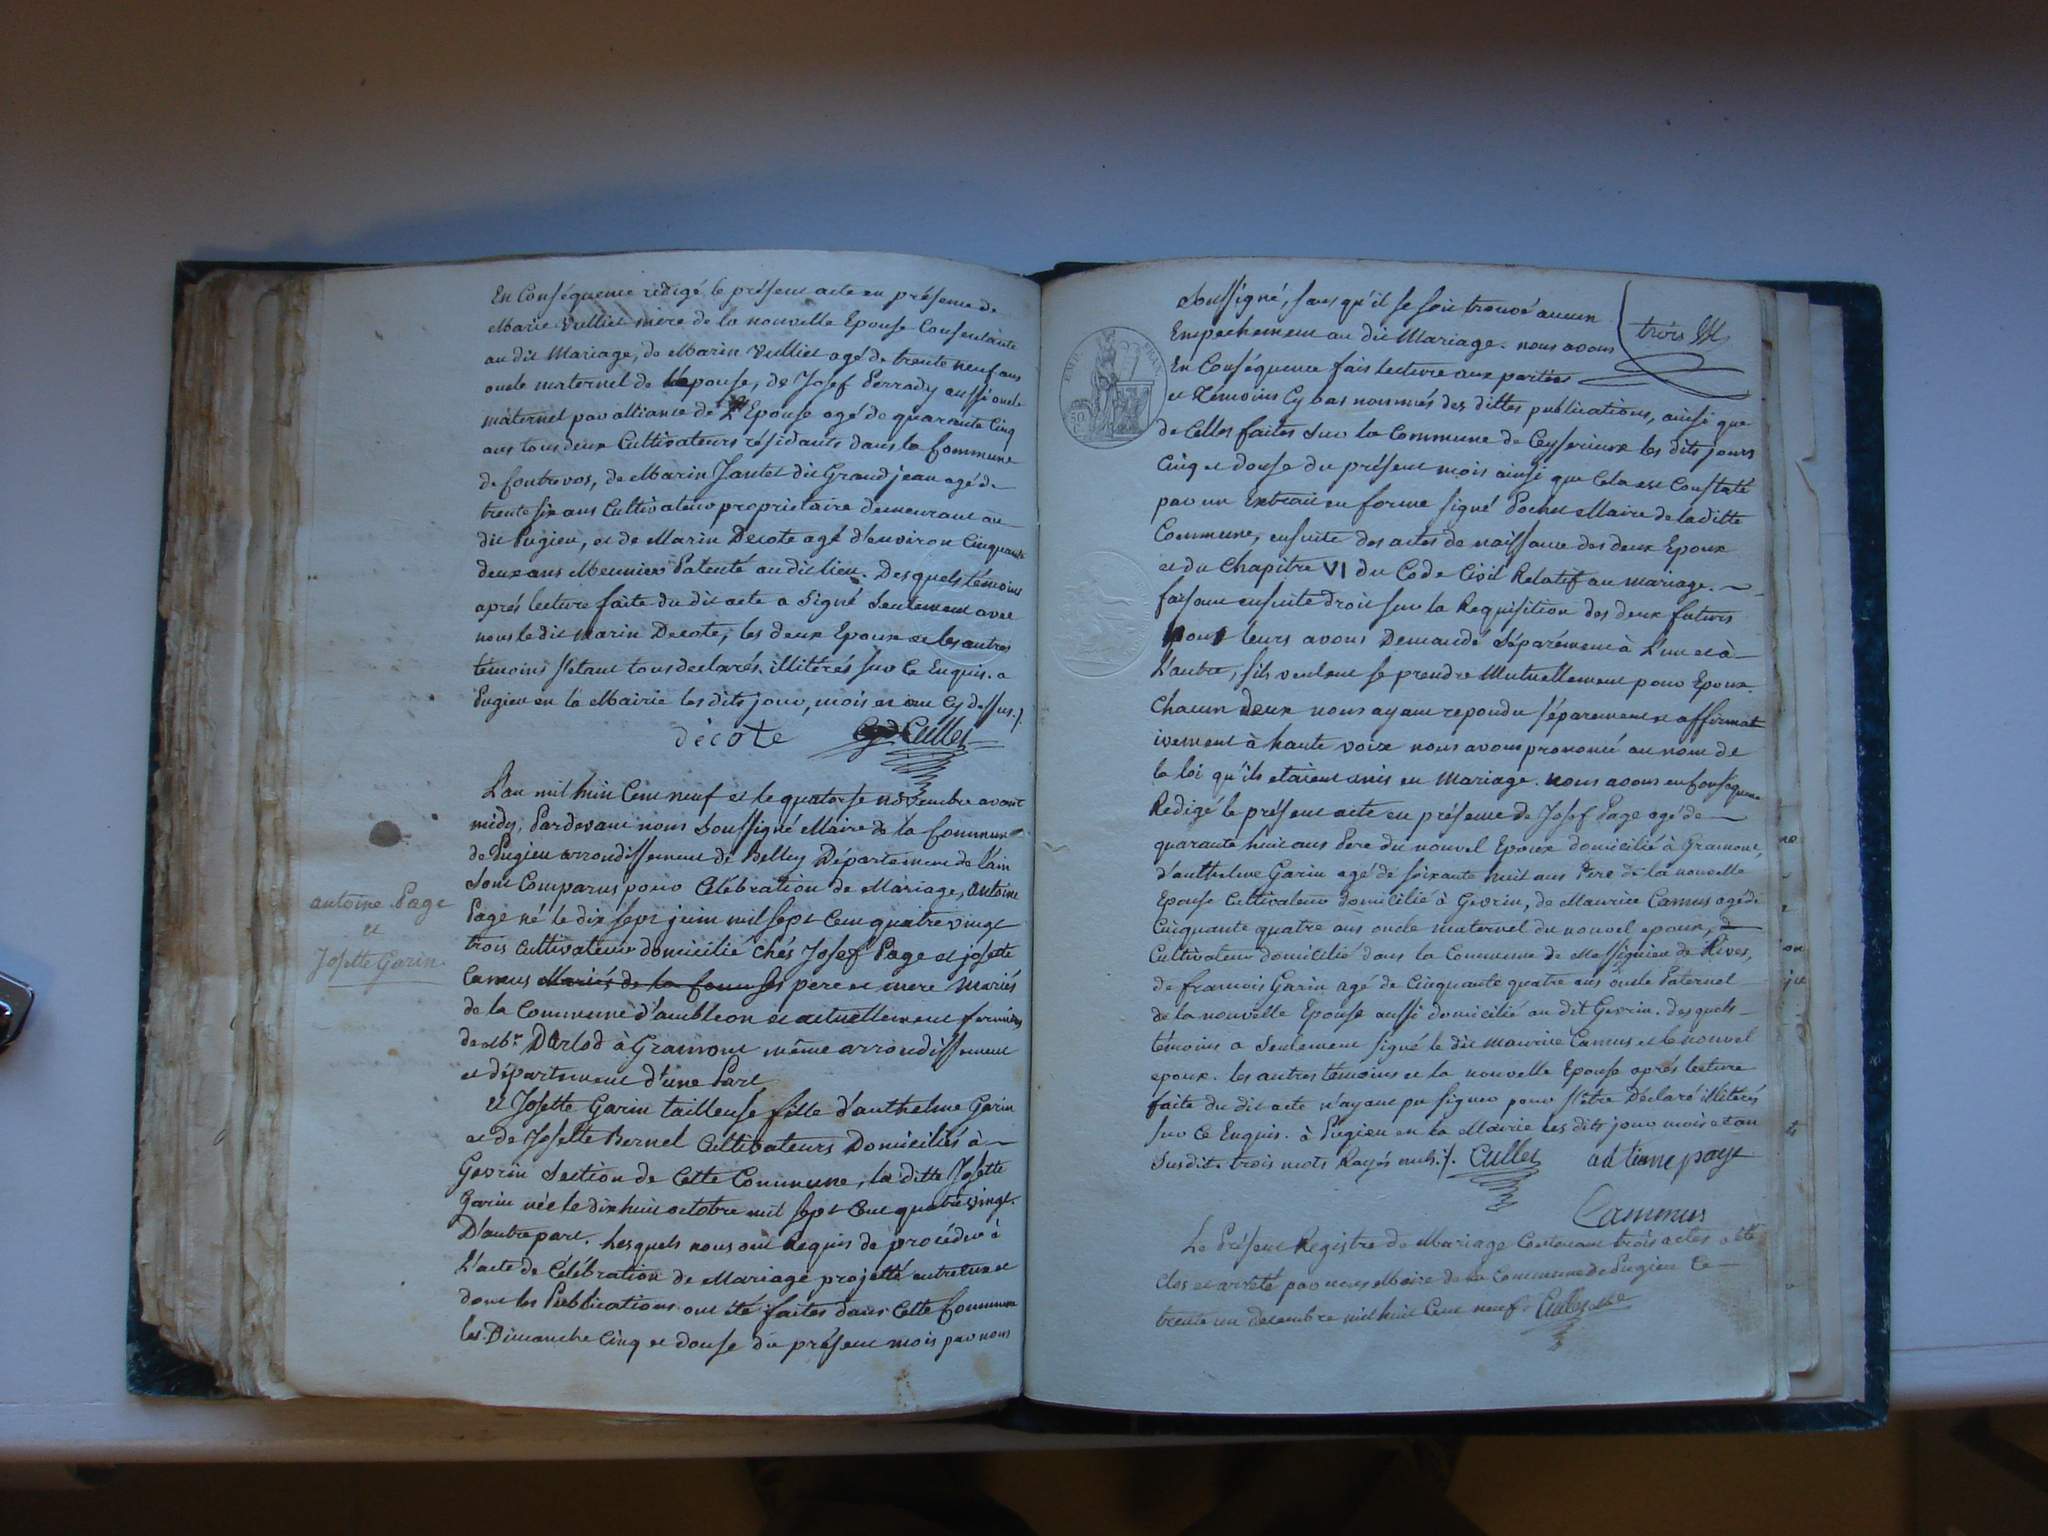 En Conséquence rédigé le présent acte en présence de
Marie Vulliet mère de la nouvelle Epouse Consentante
au dit Mariage, de Marin Vulliet agé de trente neuf ans
oncle maternel de l'épouse, de Josef Perrady aussi oncle
maternel par alliance de L'Epouse agé de quarante Cinq
ans tous deux Cultivateurs résidants dans la Commune
de de Marin Jantet dit Grandjean agé de
trente six ans Cultivateur propriétaire demeurant au
dit Pugieu, et de Marin Decote agé d'environ Cinquante
deux ans Meunier Patenté au dit lieu. Desquels témoins
après lecture faite du dit acte a Signé Seulement avec
nous le dit Marin Decote, les deux Epoux et les autres
témoins s'étant tous declarés illitérés sur Ce Enquis. a
Pugieu en la Mairie les dits jour, mois et an Cy dessus./.
décote Cullet
L'an mil huit Cent neuf et le quatorse novembre avant
midy, Pardevant nous Soussigné Maire de la Commune
de Pugieu arrondissement de Belley Département de l'ain
Sont Comparus pour Célébration de Mariage, antoine
Page né le dix sept juin mil sept Cent quatre vingt
trois Cultivateur domicilié chés Josef Page et josette
Camus Mariés de la pere et mere Mariés
de la Commune d'ambleon et actuellement fermiers
de Mr. Darlod à Gramont même arrondissement
et département d'une Part
antoine Page
et
Josette Garin
et Josette Garin tailleuse fille d'anthelme Garin
et de Josette Bernel Cultivateurs Domiciliés à
Gevrin Section de Cette Commune, la ditte Josette
Garin née le dix huit octobre mil sept Cent quatre vingt.
D'autre part. Lesquels nous ont Requis de procéder à
L'acte de Célébration de Mariage projetté entre eux et
dont les Publications ont été faites dans Cette Commune
les Dimanche Cinq et douse du présent mois par nous
Soussigné, sans qu'il se soit trouvé aucun
trois
Empechement au dit Mariage. nous avons
En Conséquence fait lecture aux parties
et Témoins Cy bas nommés des dittes publications, ainsi que
de Celles faites Sur la Commune de Ceyserieux les dits jours
Cinq et douse du présent mois ainsi que Cela est Constaté
par un Extrait en forme signé Pochet Maire de la ditte
Commune, ensuite des actes de naissance des deux Epoux
et du Chapitre VI du Code Civil Relatif au mariage.
faisant ensuite droit sur la Requisition des deux futurs
leurs avons Demandé Séparément à L'un et à
L'autre, s'ils veulent se prendre Mutuellement pour Epoux.
Chacun deux nous ayant repondu séparement et affirmat
ivement à haute voix nous avons prononcé au nom de
la loi qu'ils étaient unis en Mariage. nous avons en Conséquence
Redigé le présent acte en présence de Josef Page agé de
quarante huit ans Pere du nouvel Epoux domicilié à Gramont,
d'anthelme Garin agé de soixante huit ans Pere de la nouvelle
Epouse Cultivateur domicilié à Gevrin, de Maurice Camus agé de
Cinquante quatre ans oncle maternel du nouvel epoux,
Cultivateur domicilié dans la Commune de Massignieu de Rives,
de francois Garin agé de Cinquante quatre ans oncle Paternel
de la nouvelle Epouse aussi domicilié au dit Gevrin. desquels
témoins a Seulement signé le dit maurice Camus et le nouvel
epoux. les autres témoins et la nouvelle Epouse après lecture
faite du dit acte n'ayant pu signer pour s'être Déclaré illitérés
sur Ce Enquis. à Pugieu en la Mairie les dits jour mois et an
Susdit. trois mots Rayés nuls./. Cullet antienne page
Cammus
Le Présent Registre de Mariage Contenant trois actes a été
Clos et arreté par nous Maire de la Commune de Pugieu Ce
trente un décembre mil huit Cent neuf. Cullet